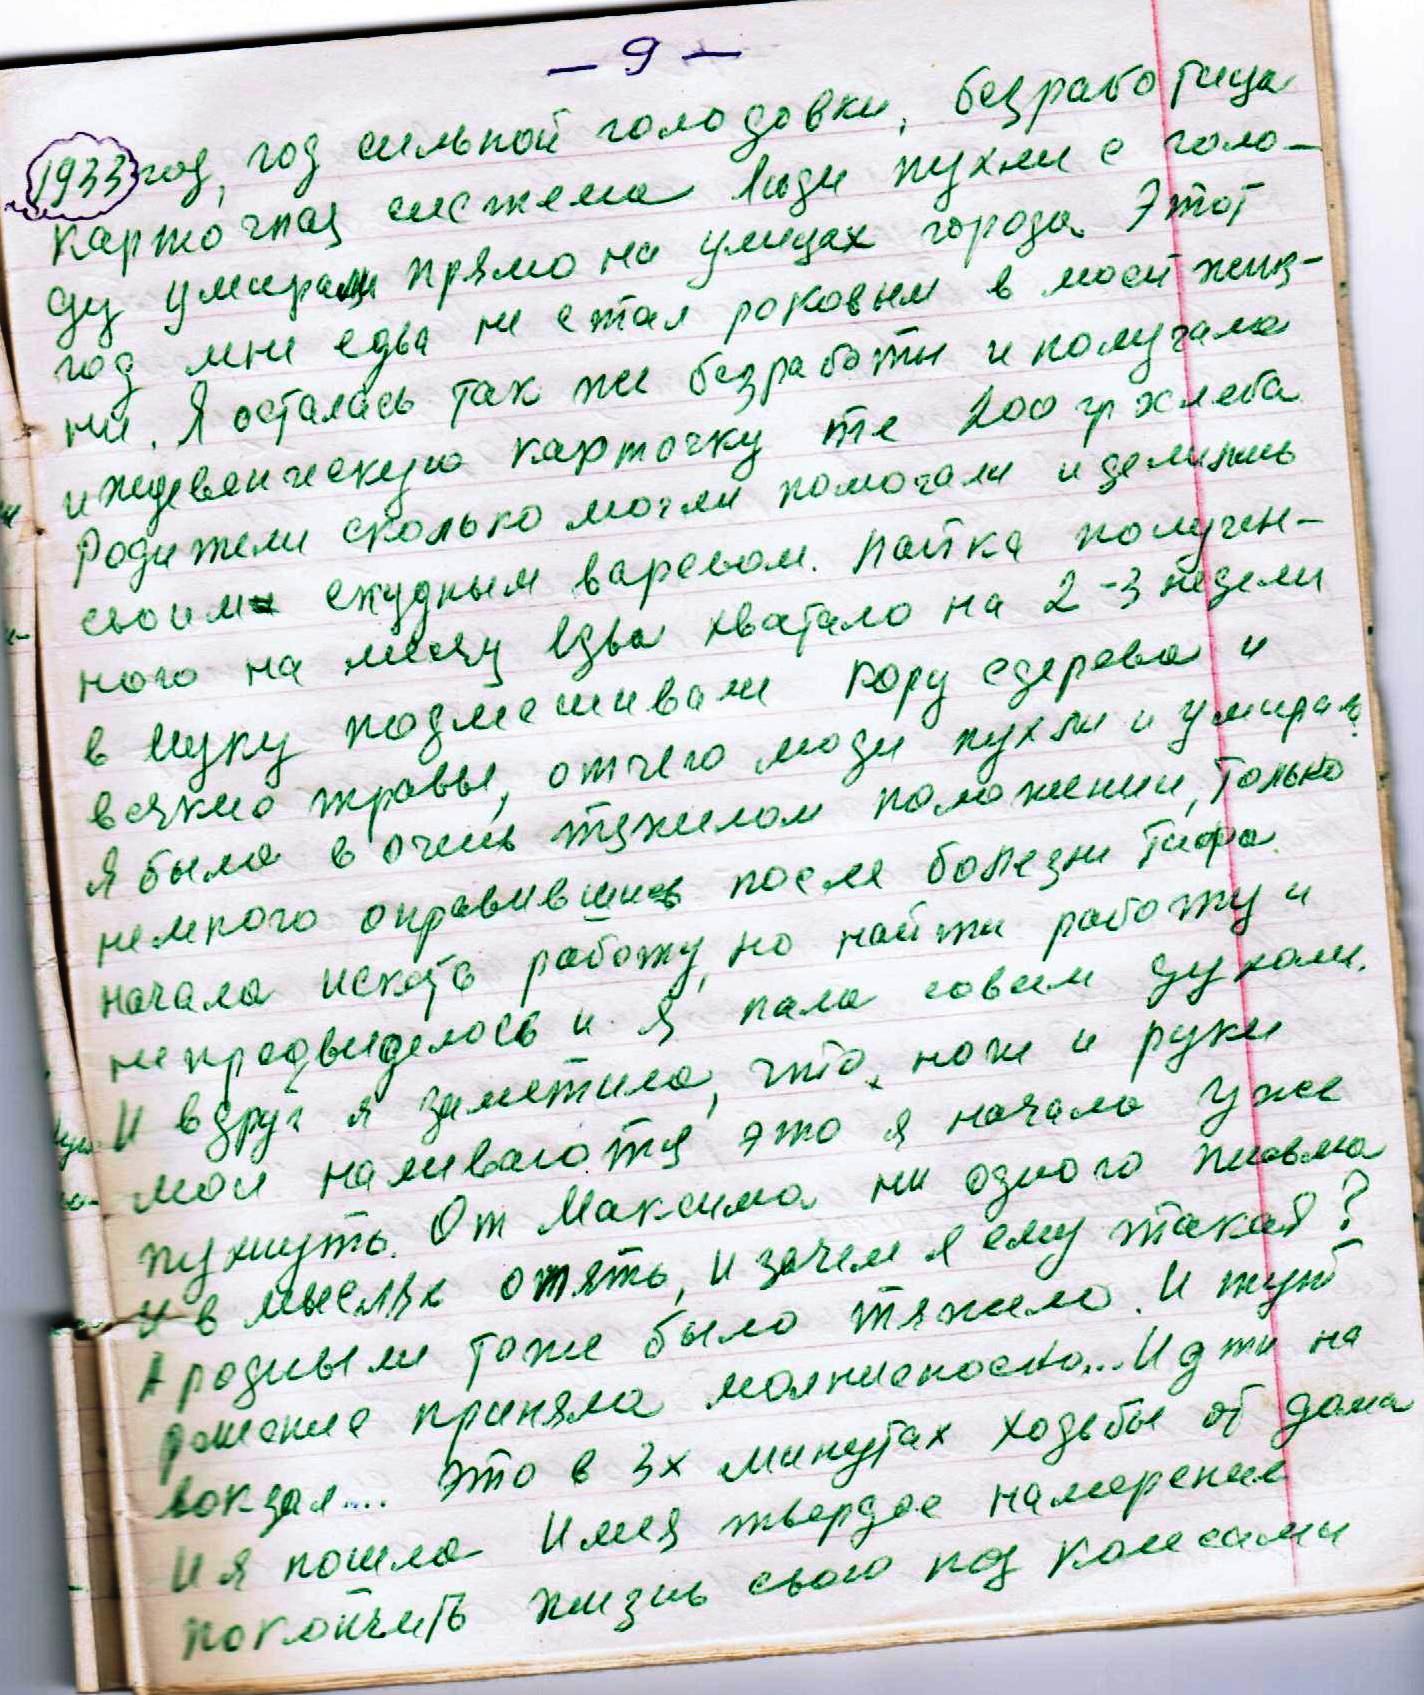 — 9 —
1933 год, год сильной голодовки, безработица
карточная система люди пухли с голо-
ду умирали прямо на улицах города. Этот
год мне едва не стал роковым в моей жиз-
ни. Я осталась так же безработы и получала
иждевенческую карточку те 200 гр хлеба
Родители сколько могли помогали и делились
своим скудным варевом. Пайка получен-
ного на месяц едва хватало на 2-3 недели
в муку подмешивали кору с дерева и
всякие травы, отчего люди пухли и умирали
Я была в очень тяжелом положении, только
немного оправившись после болезни тифа.
начала искать работу, но найти работу и
не предвиделось и я пала совсем духом.
И вдруг я заметила, что ноги и руки
мои наливаются это я начала уже
пухнуть. От Максима ни одного письма
и в мыслях опять, и зачем я ему такая?
А родным тоже было тяжело. И тут
решение приняла молниеносно... Идти на
вокзал.... это в 3х минутах ходьбы от дома
И я пошла Имея твердое намерение
покончить жизнь свою под колесами